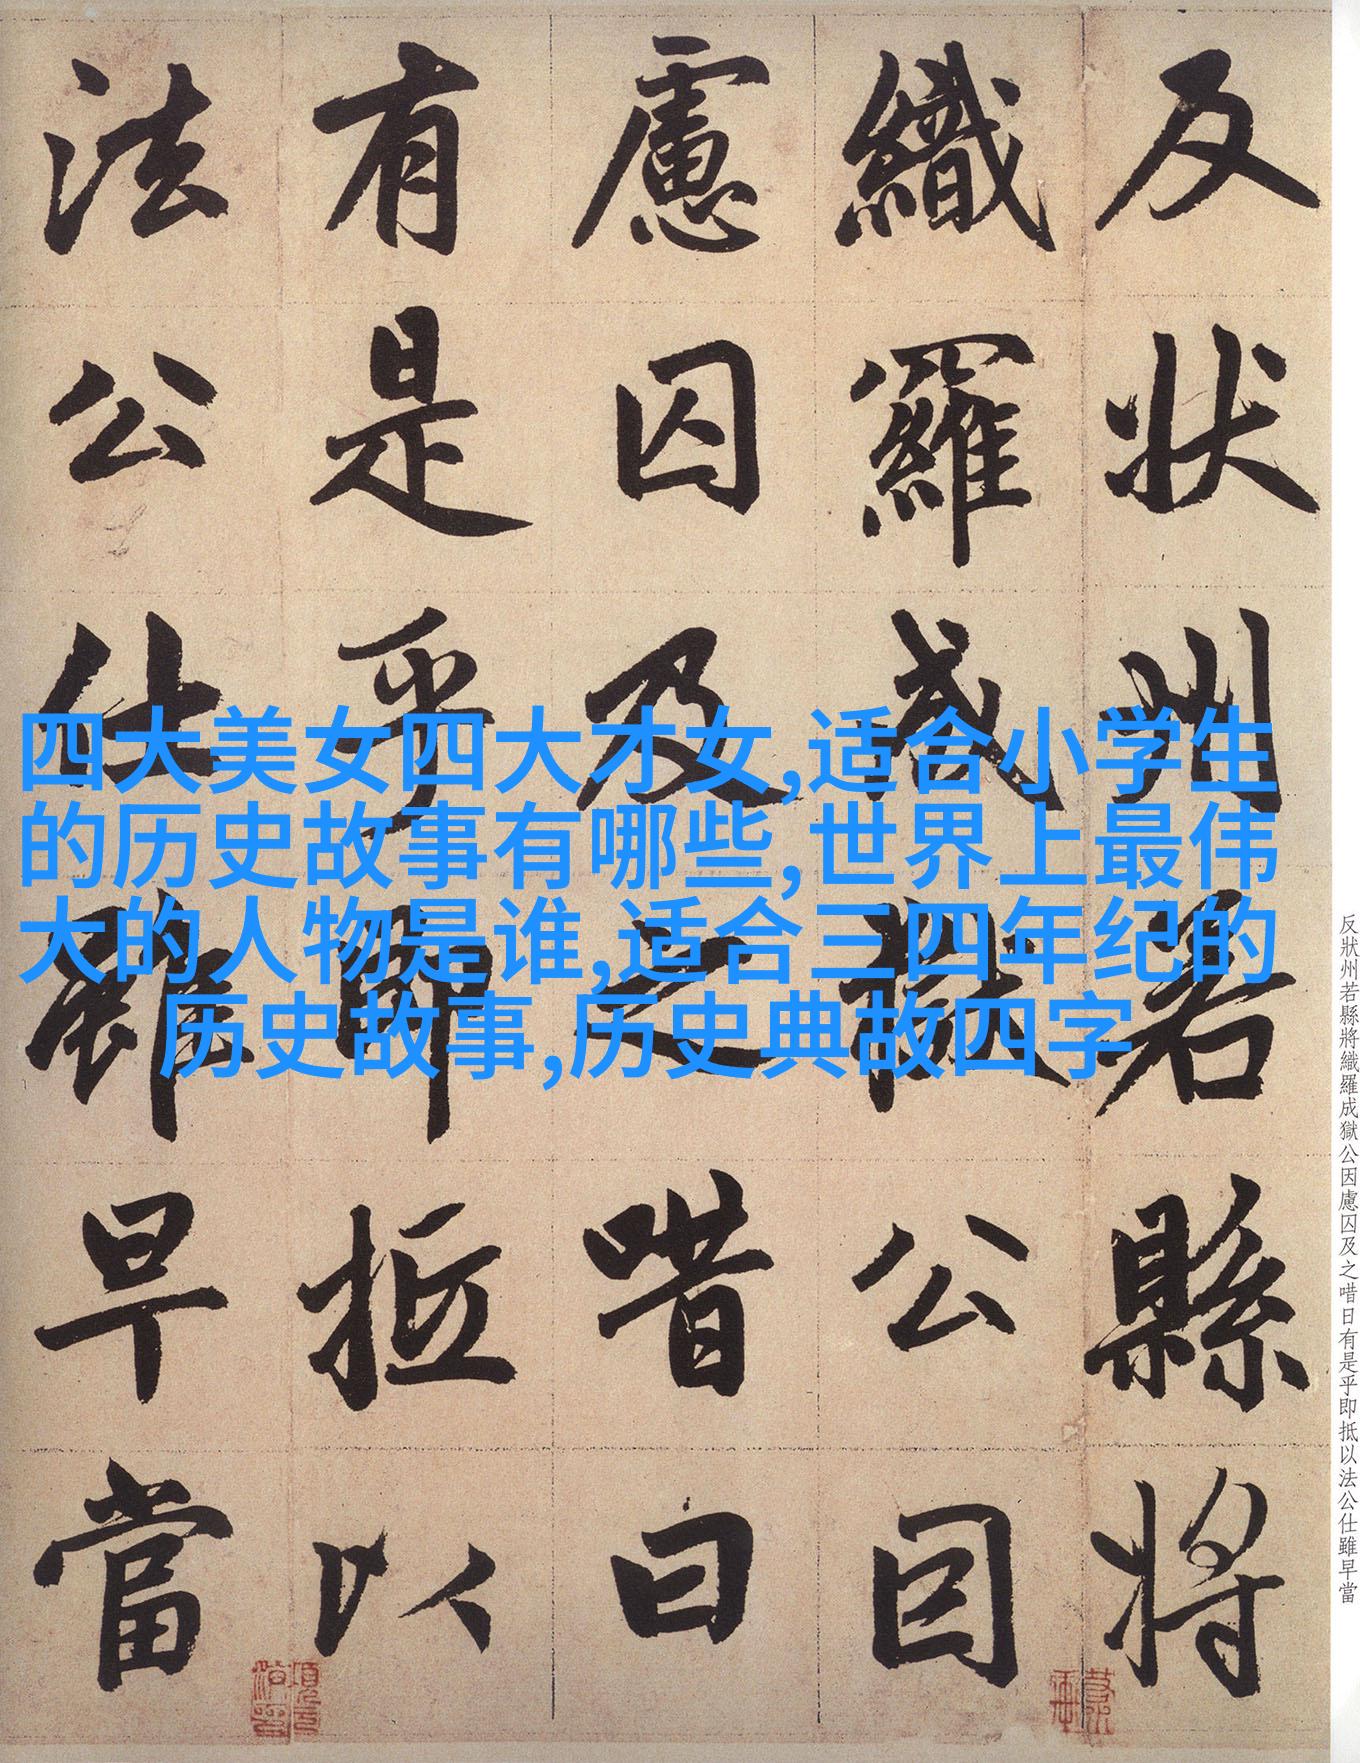 反狀州若縣將
織羅成獄公因
慮囚及之唶曰
有是乎即抵以
法公仕雖早當
四大美女四大才女,适合小学生
的历史故事有哪些,世界上最伟
大的人物是谁,适合三四年纪的
历史故事,历史典故四字
反狀州若縣將織羅成獄公因慮囚及之唶日有是乎即抵以法公仕雖早當